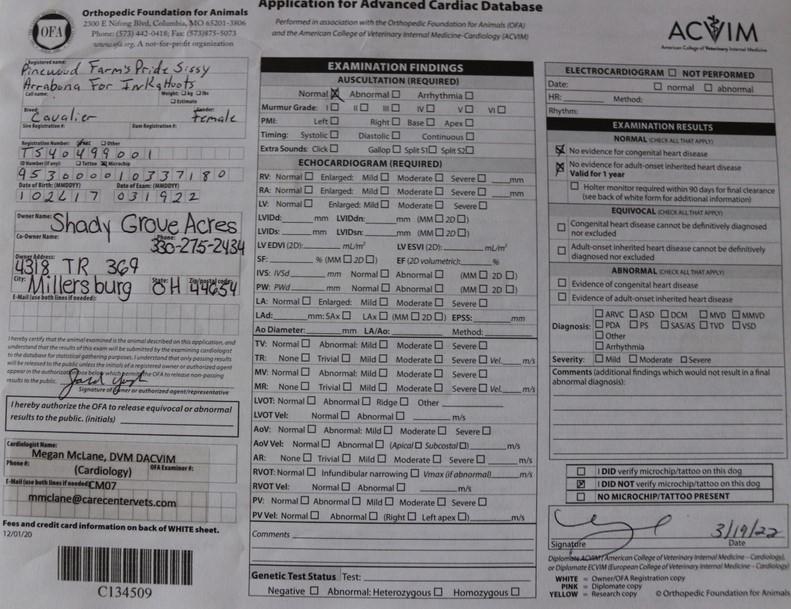 Orthopedic Foundation for Animals
2300 E Nifong Blvd, Columbia, MO 65201-3806
Phone: (573) 442-0418; Fax: (573)875-5073
www.ofa.org, A not-for-profit organization
OFA
Application for Advanced Cardiac Database
Performed in association with the Orthopedic Foundation for Animals (OFA)
and the American College of Veterinary Internal Medicine-Cardiology (ACVIM)
ACVIM
American College of Veterinary Internal Medicine
Registered name:
Pinewood Farm's Pride Sissy
Arrabona For InkgHoots
Call name: Weight: ☐ kg ☐ lbs
☐ Estimate
Breed: Gender:
Cavalier Female
Sire Registration #: Dam Registration #:
Registration Number: ☒ AKC ☐ Other
TS40499001
ID Number (if any): ☐ Tattoo ☒ Microchip
953000010337180
Date of Birth: (MMDDYY) Date of Exam: (MMDDYY)
102617 031922
Owner Name: Shady Grove Acres
Co-Owner Name: Phone:
330-275-2434
Owner Address:
4318 TR 369
City: State: Zip/postal code:
Millersburg OH 44654
E-Mail (use both lines if needed):
I hereby certify that the animal examined is the animal described on this application, and
understand the results of this exam will be submitted by the examining cardiologist
to the database for statistical gathering purposes. I understand that only passing results
will be released to the public unless the initials of a registered owner or authorized agent
appear in the authorization box below which permits the OFA to release non-passing
results to the public.
Signature of owner or authorized agent/representative
I hereby authorize the OFA to release equivocal or abnormal
results to the public. (initials)
Cardiologist Name:
Megan McLane, DVM DACVIM
Phone #: (Cardiology) OFA Examiner #:
E-Mail (use both lines if needed): CM07
mmclane@carecentervets.com
Fees and credit card information on back of WHITE sheet.
12/01/20
C134509
EXAMINATION FINDINGS
AUSCULTATION (REQUIRED)
Normal ☒ Abnormal ☐ Arrhythmia ☐
Murmur Grade: I ☐ II ☐ III ☐ IV ☐ V ☐ VI ☐
PMI: Left ☐ Right ☐ Base ☐ Apex ☐
Timing: Systolic ☐ Diastolic ☐ Continuous ☐
Extra Sounds: Click ☐ Gallop ☐ Split S1 ☐ Split S2 ☐
ECHOCARDIOGRAM (REQUIRED)
RV: Normal ☐ Enlarged: Mild ☐ Moderate ☐ Severe ☐ ____mm
RA: Normal ☐ Enlarged: Mild ☐ Moderate ☐ Severe ☐ ____mm
LV: Normal ☐ Enlarged: Mild ☐ Moderate ☐ Severe ☐
LVIDd: ____mm LVIDdn: ____mm (MM ☐ 2D ☐)
LVIDs: ____mm LVIDsn: ____mm (MM ☐ 2D ☐)
LV EDVI (2D): ____mL/m² LV ESVI (2D): ____mL/m²
SF: ____% (MM ☐ 2D ☐) EF (2D volumetric): ____%
IVS: IVSd ____mm Normal ☐ Abnormal ☐ (MM ☐ 2D ☐)
PW: PWd ____mm Normal ☐ Abnormal ☐ (MM ☐ 2D ☐)
LA: Normal ☐ Enlarged: Mild ☐ Moderate ☐ Severe ☐
LAd: ____mm: SAx ☐ LAx ☐ (MM ☐ 2D ☐) EPSS: ____mm
Ao Diameter: ____mm LA/Ao: ____ Method: ____
TV: Normal ☐ Abnormal: Mild ☐ Moderate ☐ Severe ☐
TR: None ☐ Trivial ☐ Mild ☐ Moderate ☐ Severe ☐ Vel. ____m/s
MV: Normal ☐ Abnormal: Mild ☐ Moderate ☐ Severe ☐
MR: None ☐ Trivial ☐ Mild ☐ Moderate ☐ Severe ☐ Vel. ____m/s
LVOT: Normal ☐ Abnormal ☐ Ridge ☐ Other ____
LVOT Vel: Normal ☐ Abnormal ☐ ____m/s
AoV: Normal ☐ Abnormal: Mild ☐ Moderate ☐ Severe ☐
AoV Vel: Normal ☐ Abnormal ☐ (Apical ☐ Subcostal ☐) ____m/s
AR: None ☐ Trivial ☐ Mild ☐ Moderate ☐ Severe ☐ ____m/s
RVOT: Normal ☐ Infundibular narrowing ☐ Vmax (if abnormal) ____m/s
RVOT Vel: Normal ☐ Abnormal ☐ ____m/s
PV: Normal ☐ Abnormal: Mild ☐ Moderate ☐ Severe ☐
PV Vel: Normal ☐ Abnormal ☐ (Right ☐ Left apex ☐) ____m/s
Comments
Genetic Test Status Test:
Negative ☐ Abnormal: Heterozygous ☐ Homozygous ☐
ELECTROCARDIOGRAM ☐ NOT PERFORMED
Date: ☐ normal ☐ abnormal
HR: Method:
Rhythm:
EXAMINATION RESULTS
NORMAL (CHECK ALL THAT APPLY)
☒ No evidence for congenital heart disease
☒ No evidence for adult-onset inherited heart disease
Valid for 1 year
☐ Holter monitor required within 90 days for final clearance
(see back of white form for additional information)
EQUIVOCAL (CHECK ALL THAT APPLY)
☐ Congenital heart disease cannot be definitively
diagnosed nor excluded
☐ Adult-onset inherited heart disease cannot be definitively
diagnosed nor excluded
ABNORMAL (CHECK ALL THAT APPLY)
☐ Evidence of congenital heart disease
☐ Evidence of adult-onset inherited heart disease
☐ ARVC ☐ ASD ☐ DCM ☐ MVD ☐ MMVD
Diagnosis: ☐ PDA ☐ PS ☐ SAS/AS ☐ TVD ☐ VSD
☐ Other
☐ Arrhythmia
Severity: ☐ Mild ☐ Moderate ☐ Severe
Comments (additional findings which would not result in a final
abnormal diagnosis):
☐ I DID verify microchip/tattoo on this dog
☒ I DID NOT verify microchip/tattoo on this dog
☐ NO MICROCHIP/TATTOO PRESENT
3/19/22
Signature Date
Diplomate ACVIM (American College of Veterinary Internal Medicine - Cardiology),
or Diplomate ECVIM (European College of Veterinary Internal Medicine - Cardiology)
WHITE = Owner/OFA Registration copy
PINK = Diplomate copy
YELLOW = Research copy © Orthopedic Foundation for Animals